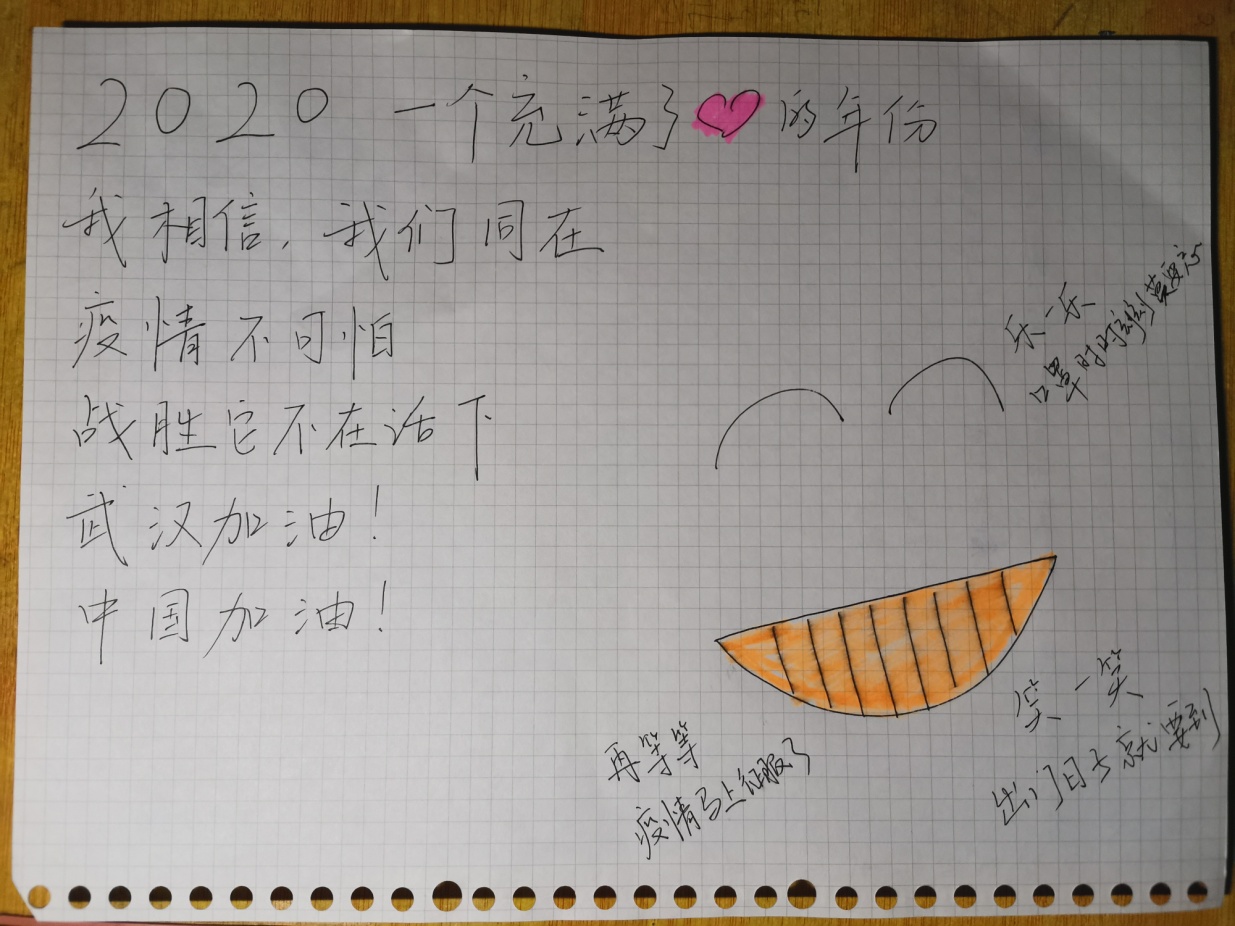 2020 一个充满了❤的年份
我相信，我们同在
疫情不可怕
战胜它不在话下
武汉加油！
中国加油！
乐一乐
口罩时时刻刻要
笑一笑
出门日子就要到
再等等
疫情马上征服了